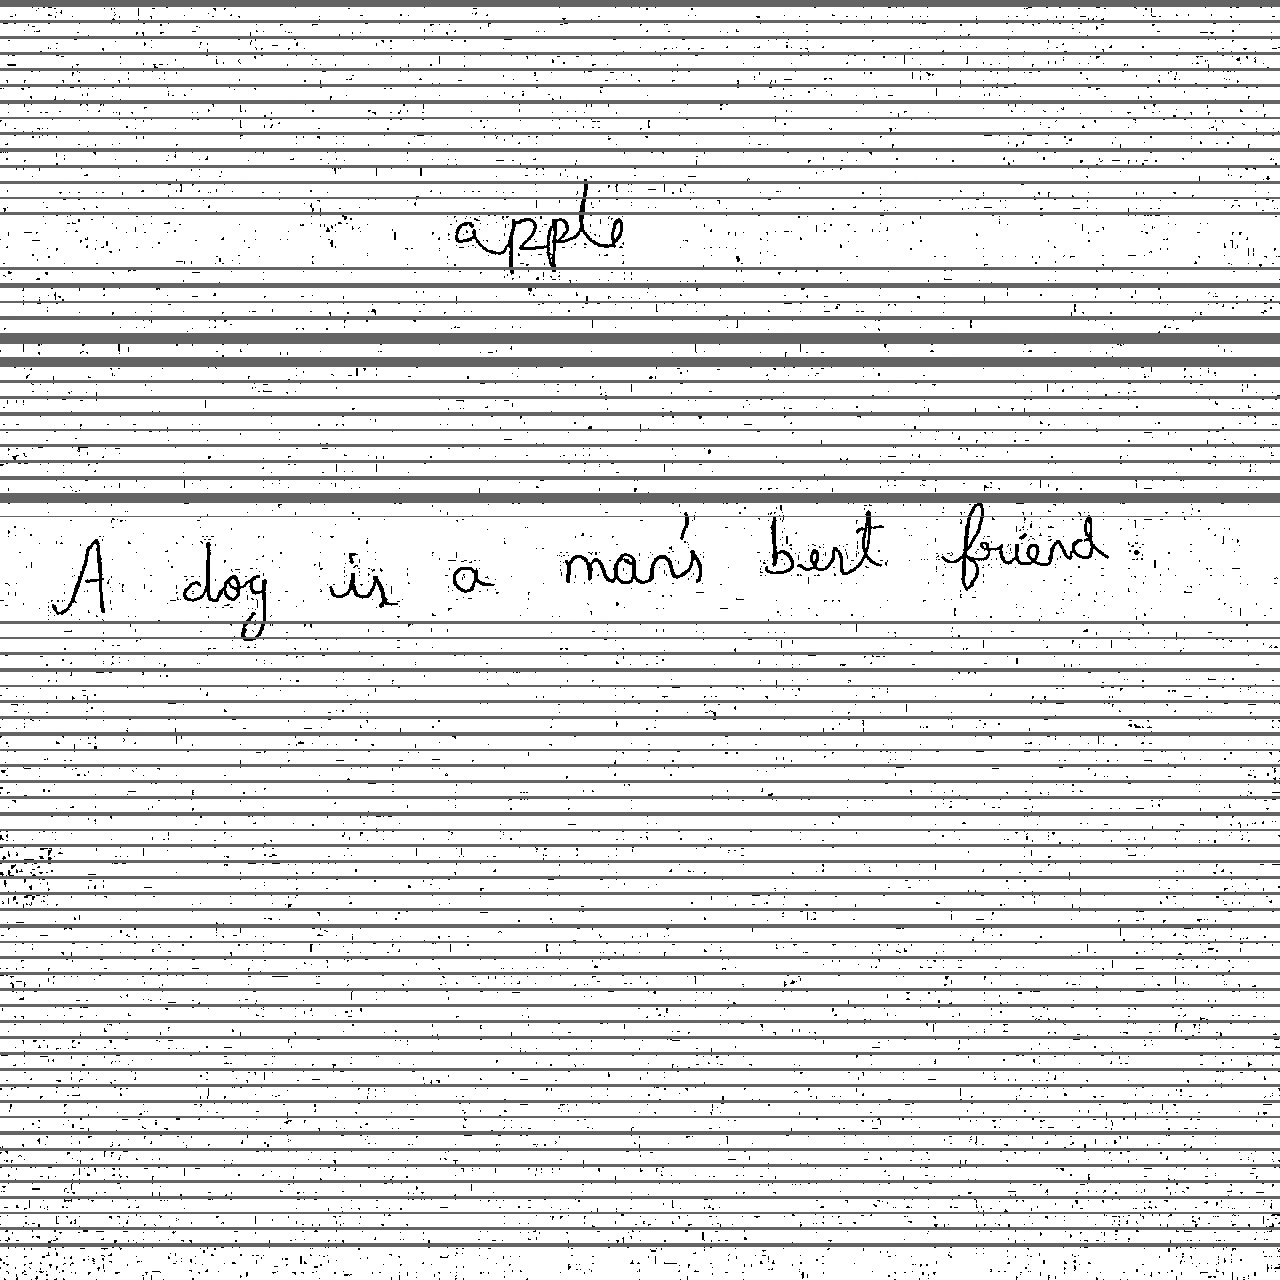 apple
A dog is a man's best friend.